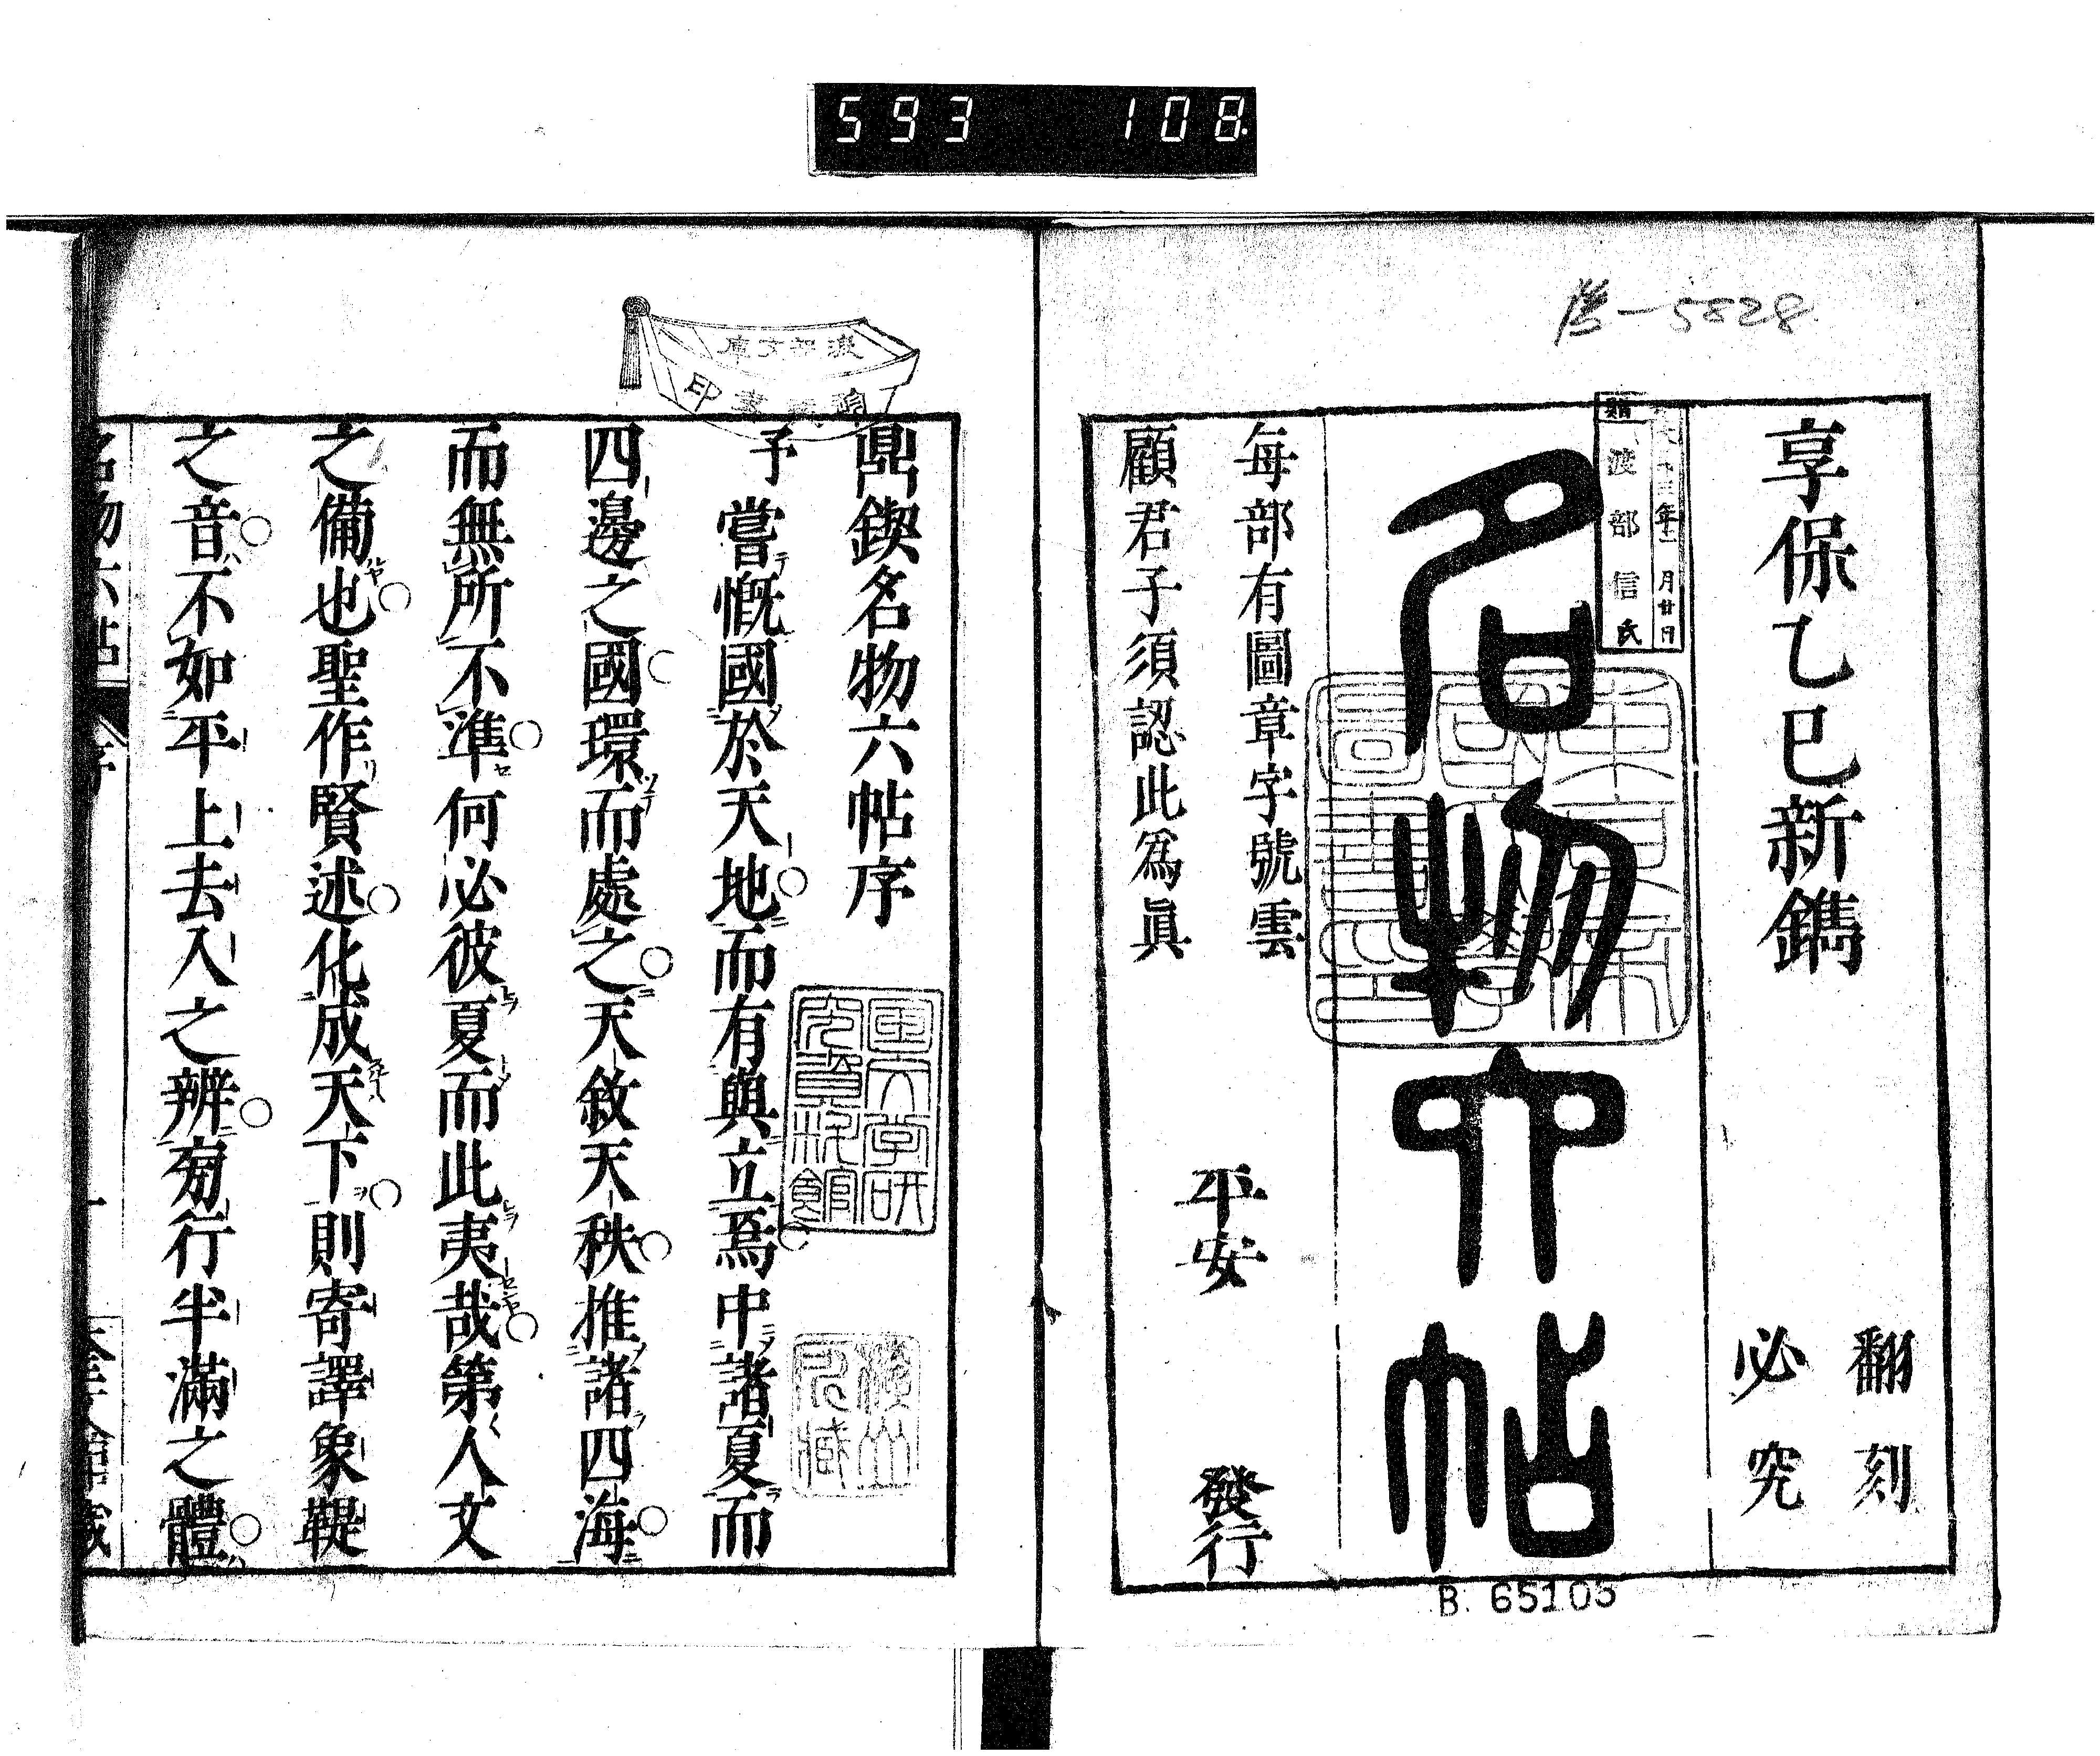 593 108
B. 65105
享保乙巳新鐫
翻刻
必究
名物六帖
渡部信氏
每部有圖章字號雲
顧君子須認此爲眞
平安
發行
渡部文庫
印
鼎鍥名物六帖序
予嘗慨國於天地而有與立焉中諸夏而
四邊之國環而處之天敘天秩推諸四海
而無所不準何必彼夏而此夷哉第人文
之備也聖作賢述化成天下則寄譯象鞮
之音不如平上去入之辨㫄行半滿之體
國文学研
究資料館